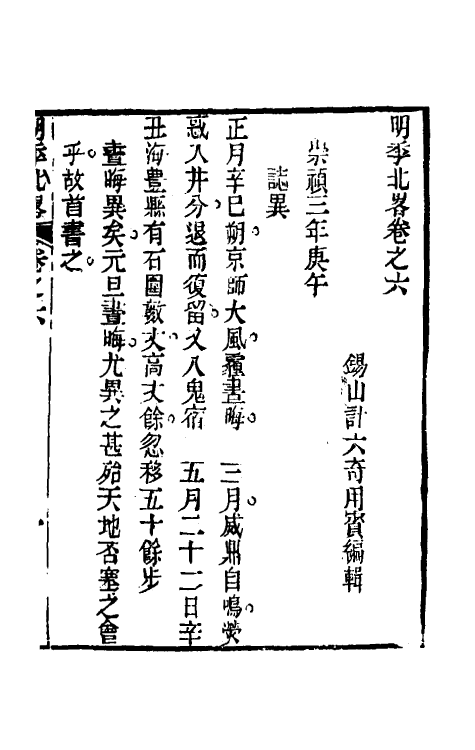 明季北畧卷之六
錫山計六奇用賓編輯
崇禎三年庚午
誌異
正月辛巳朔京師大風霾晝晦 三月咸鼎自鳴熒
惑入井分退而復留又入鬼宿 五月二十二日辛
丑海豊縣有石圍數丈高丈餘忽移五十餘步
晝晦異矣元旦晝晦尤異之甚殆天地否塞之會
乎故首書之
明季北畧 卷之六 一